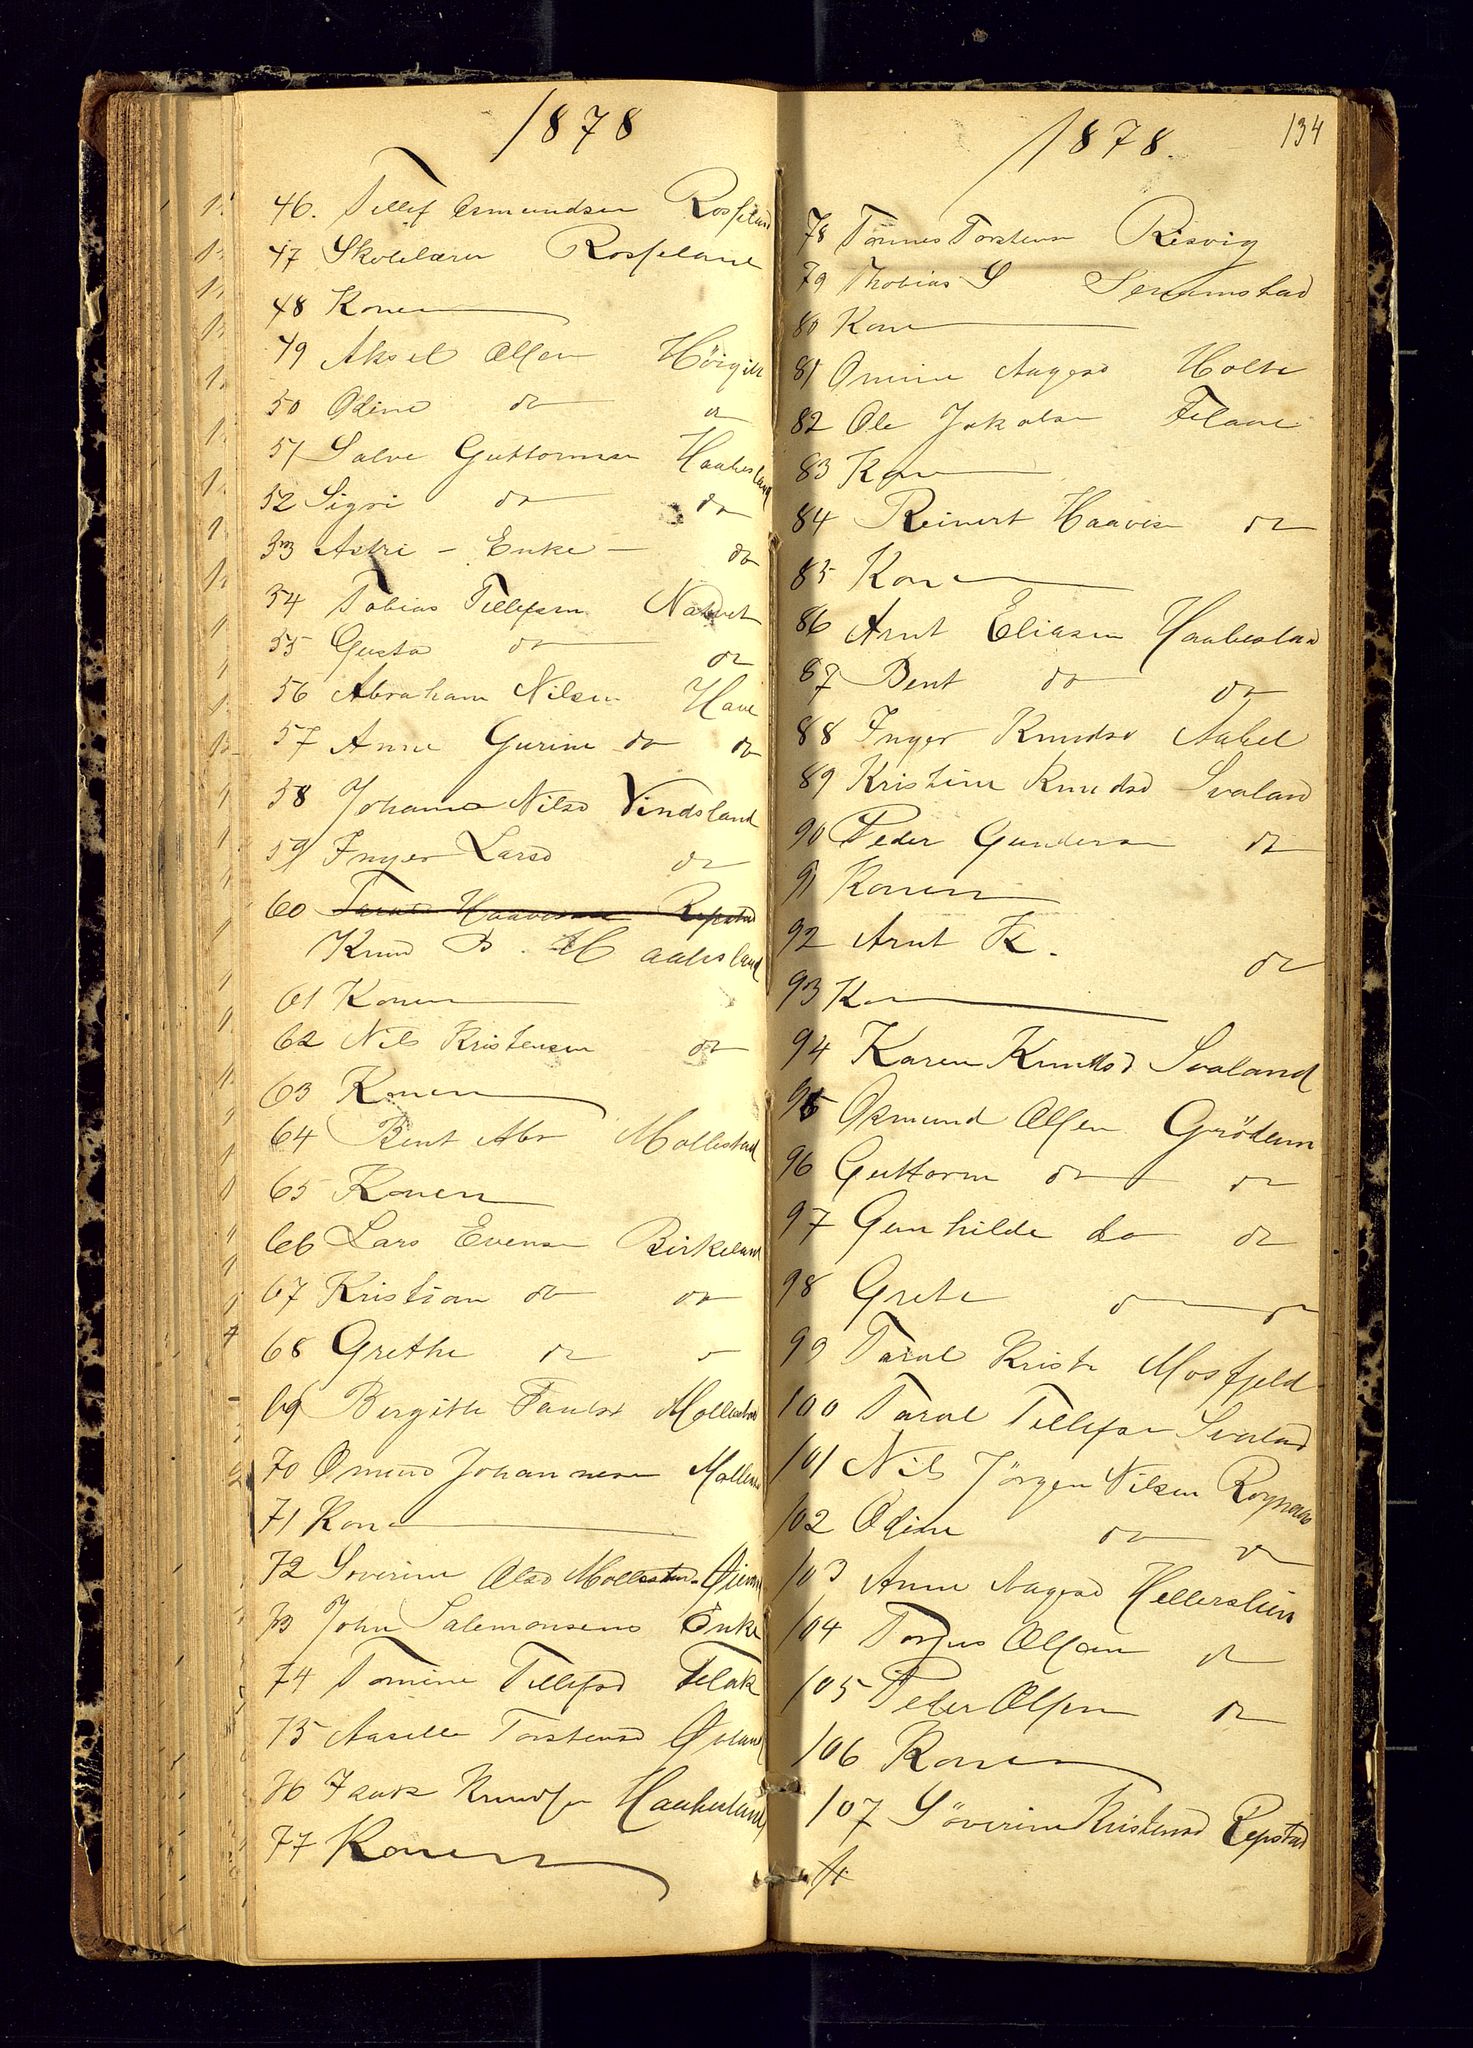 1878
46. Tellef Osmundsen Rosseland
47 Skolelærer Rosseland
48 Konen
49 Aksel Olsen
50 Odine do do
51 Salve Guttormsen Haabesland
52 Sigri do do
53 Astri - Enke - do
54 Tobias Tellefsen
55 Gusta do do
56 Abraham Nilsen Have
57 Anne Gurine do do
58 Johanne Nilsd Vindsland
59 Inger Larsd do
60 Haaversen Repstad
Knud B. Haabesland
61 Konen
62 Nils Kristensen do
63 Konen
64 Bent Abr Mollestad
65 Konen
66 Lars Evensen Birkeland
67 Kristian do do
68 Grethe do
69 Birgithe Mollestad
70 Omund Johannesen Mollestad
71 Kone
72 Severine Olsd Mollestad
73 John Salemonsens Enke
74 Tomine Tellefsd Flak
75 Aasille Torstensd
76 Knudsen Haabesland
77 Konen
1878. 134
78 Tønnes Torstensen Risvig
79 Thobias S
80 Kone
81 Omine Aagesd Holte
82 Ole Jakobsen
83 Kone
84 Reinert Haavesen do
85 Konen
86 Arnt Eliasen Haabesland
87 Bent do do
88 Inger Knudsd Aabel
89 Kristine Knudsd Svaland
90 Peder Gundersen do
91 Konen
92 Arnt K. do
93 Kone
94 Karen Knudsd Svaland
95 Osmund Olsen Grödum
96 Guttorm do do
97 Gunhilde do do
98 Grete do do
99 Taral Krist Mosfjeld
100 Taral Tellefsen Svaland
101 Nils Jörgen Nilsen
102 Odine do do
103 Anne Aagesd
104 Torjus Olsen do
105 Peder Olsen do
106 Konen
107 Söverine Kristensd Repstad